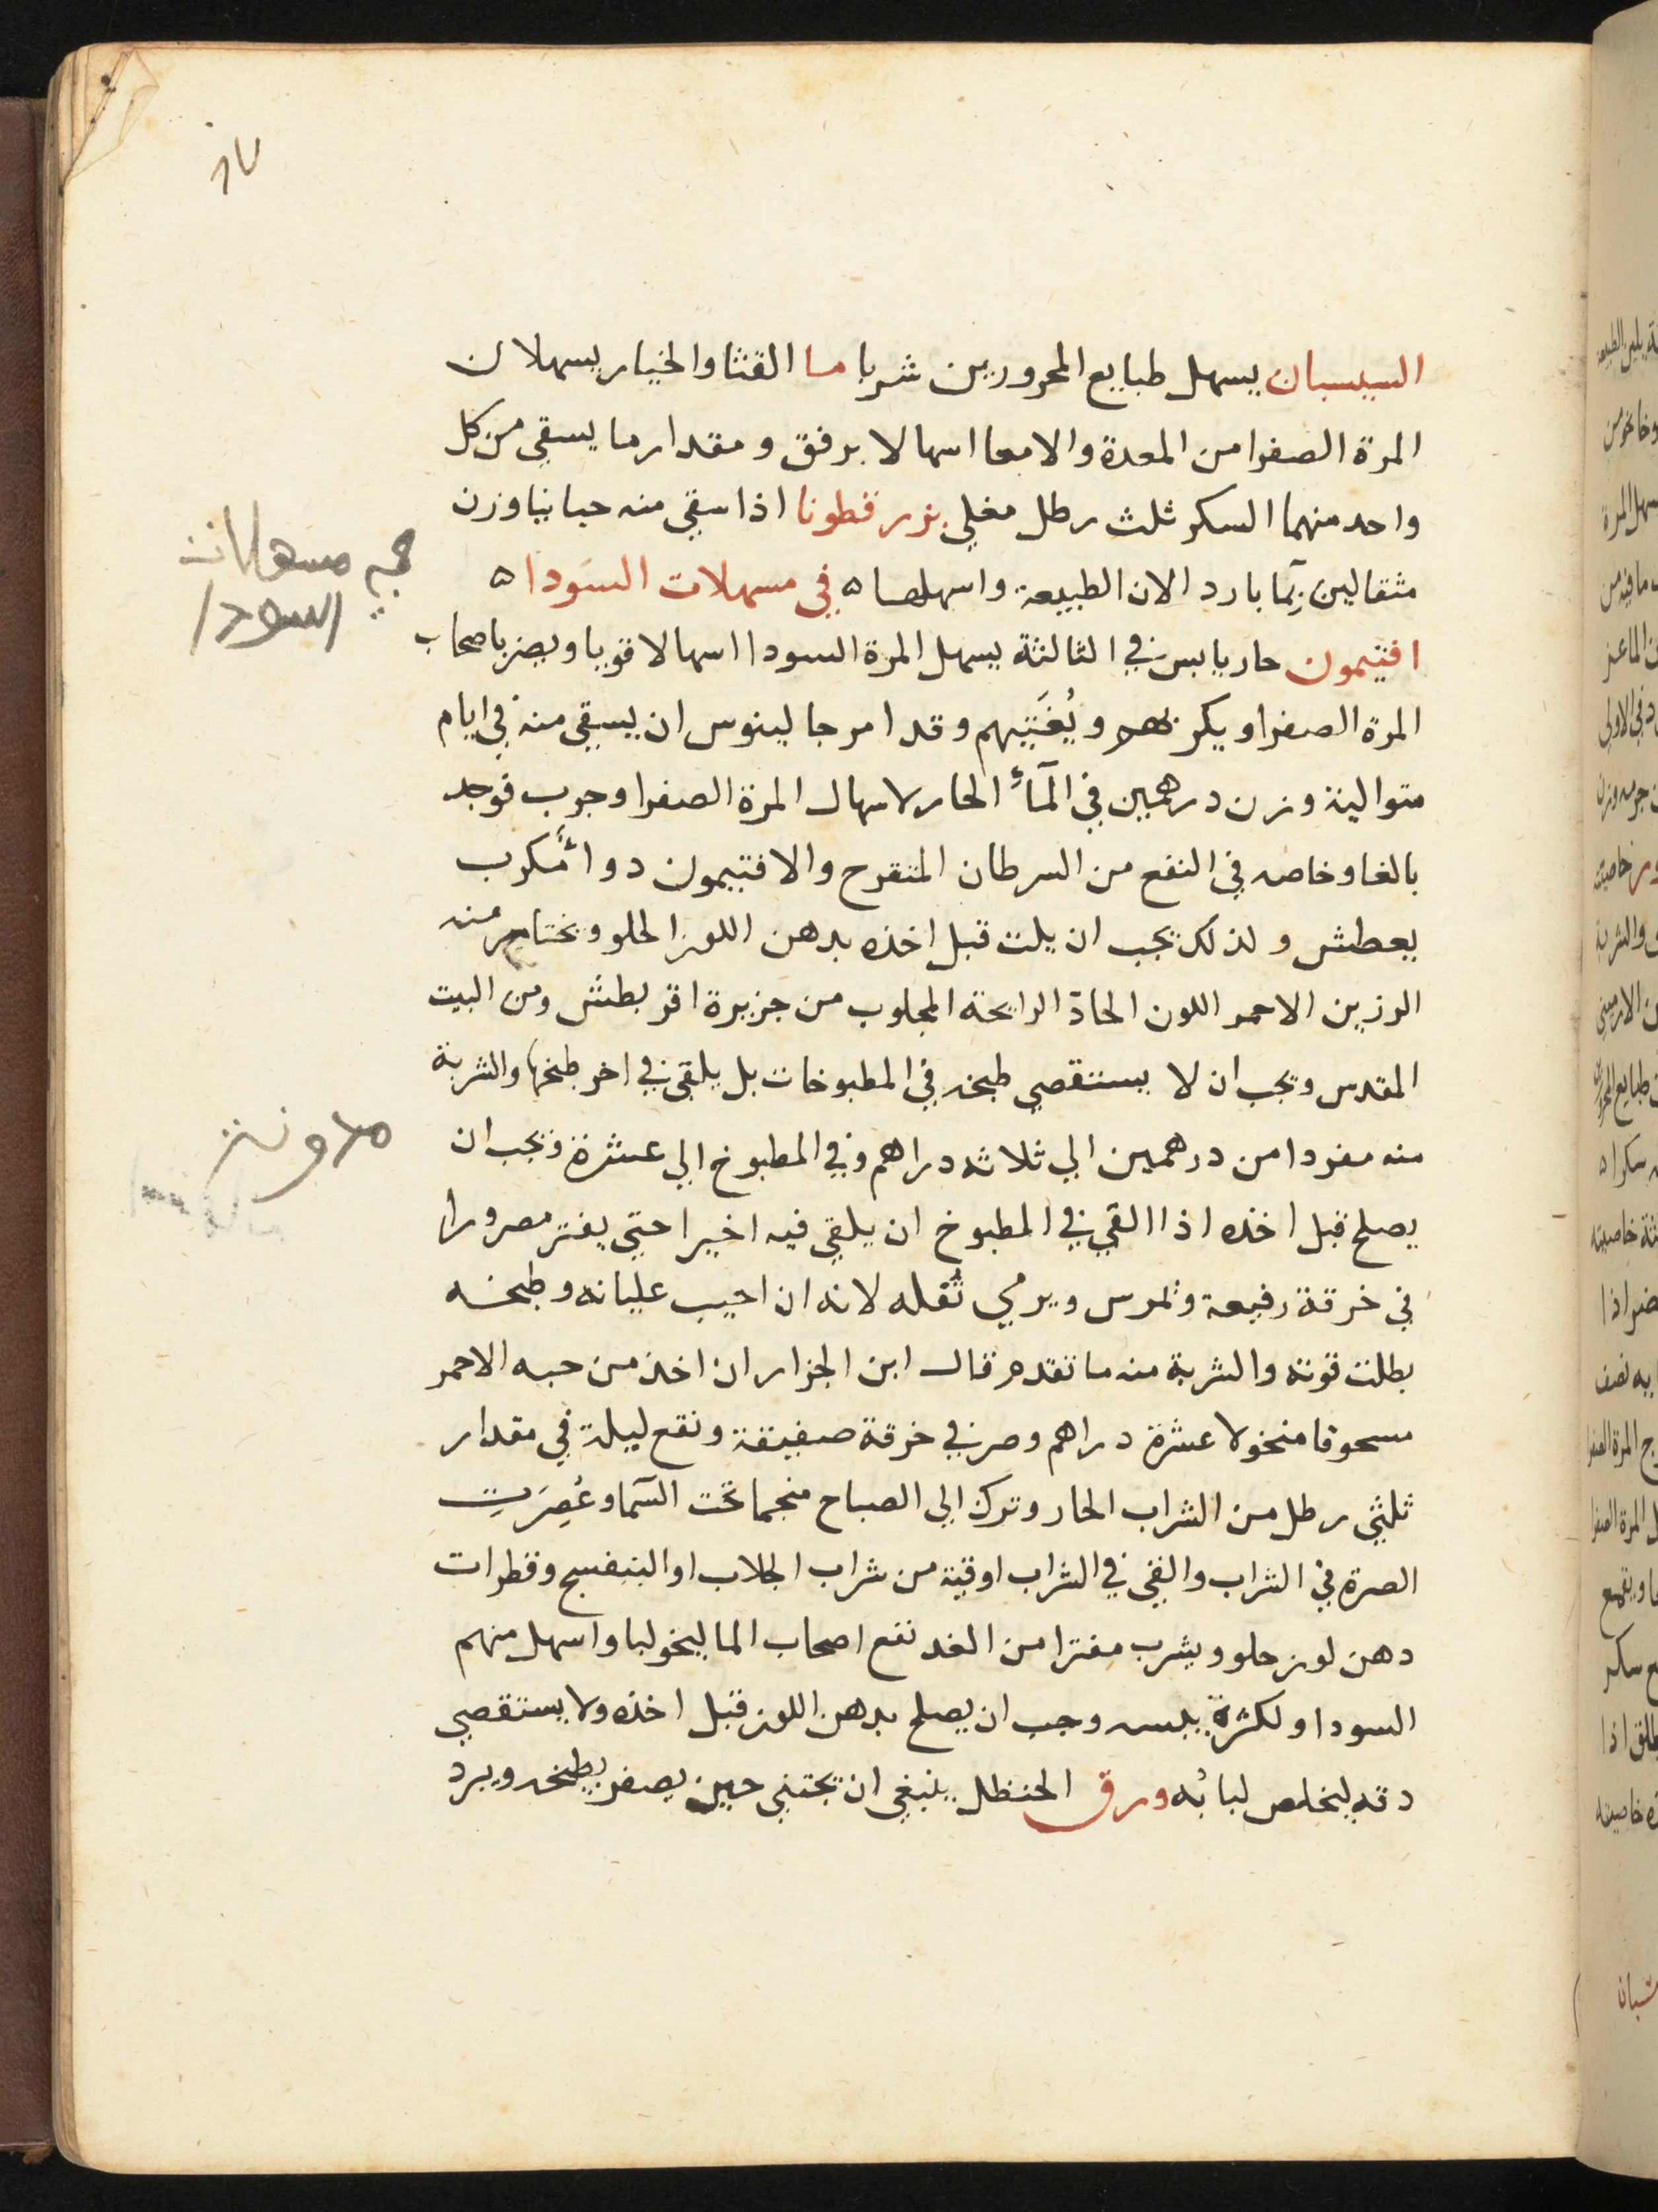 السيسبان يسهل طبايع المحرورين شربا ما القثا والخيار يسهلان
المرة الصفرا من المعدة والامعا اسهالا برفق ومقدار ما يسقي من كل
واحد منهما السكر ثلث رطل مغلي بزر قطونا اذا سقي منه حبا نيا وزن
مثقالين بمآ بارد الان الطبيعة واسهلها ه في مسهلات السَودا ه
في مسهلات
السودا
افتيمون حار يابس في الثالثة يسهل المرة السودا اسهالا قويا ويضر باصحاب
المرة الصفرا ويكربهم ويُغَثِيهم وقد امر جالينوس ان يسقي منه في ايام
متوالية وزن درهمين في المآء الحار لاسهال المرة الصفرا وجرب فوجد
بالغا وخاصه في النفع من السرطان المتقرح والافتيمون دواء مكرب
يعطش ولذلك يجب ان يلت قبل اخذه بدهن اللوز الحلو ويختار منه
الرزين الاحمر اللون الحادّ الرايحة المجلوب من جزيرة اقريطش ومن البيت
المقدس ويجب ان لا يستقصي طبخه في المطبوخات بل يلقي في اخر طبخها والشربة
منه مفردا من درهمين الي ثلاثه دراهم وفي المطبوخ الي عشرة ويجب ان
يصلح قبل اخذه اذا القي في المطبوخ ان يلقي فيه اخيرا حتي يفتر مصرورا
في خرقة رفيعة ويمرس ويرمي ثُفله لانه ان اجيب غليانه وطبخه
بطلت قوته والشربة منه ما تقدم قال ابن الجزار ان اخذ من حبه الاحمر
مسحوقا منخولا عشرة دراهم وصر في خرقة صفيقة ونقع ليلة في مقدار
ثلثي رطل من الشراب الحار وترك الي الصباح منجما تحت السمآ وعُصِرَت
الصرة في الشراب والقي في الشراب اوقية من شراب الجلاب او البنفسج وقطرات
دهن لوز حلو ويشرب مفترا من الغد نفع اصحاب الماليخوليا واسهل منهم
السودا ولكثرة يبسه وجب ان يصلح بدهن اللوز قبل اخذه ولا يستقصي
دقه ليخلص لبابُه ورق الحنظل ينبغي ان يجتني حين يصفر بطيخه ويبرد